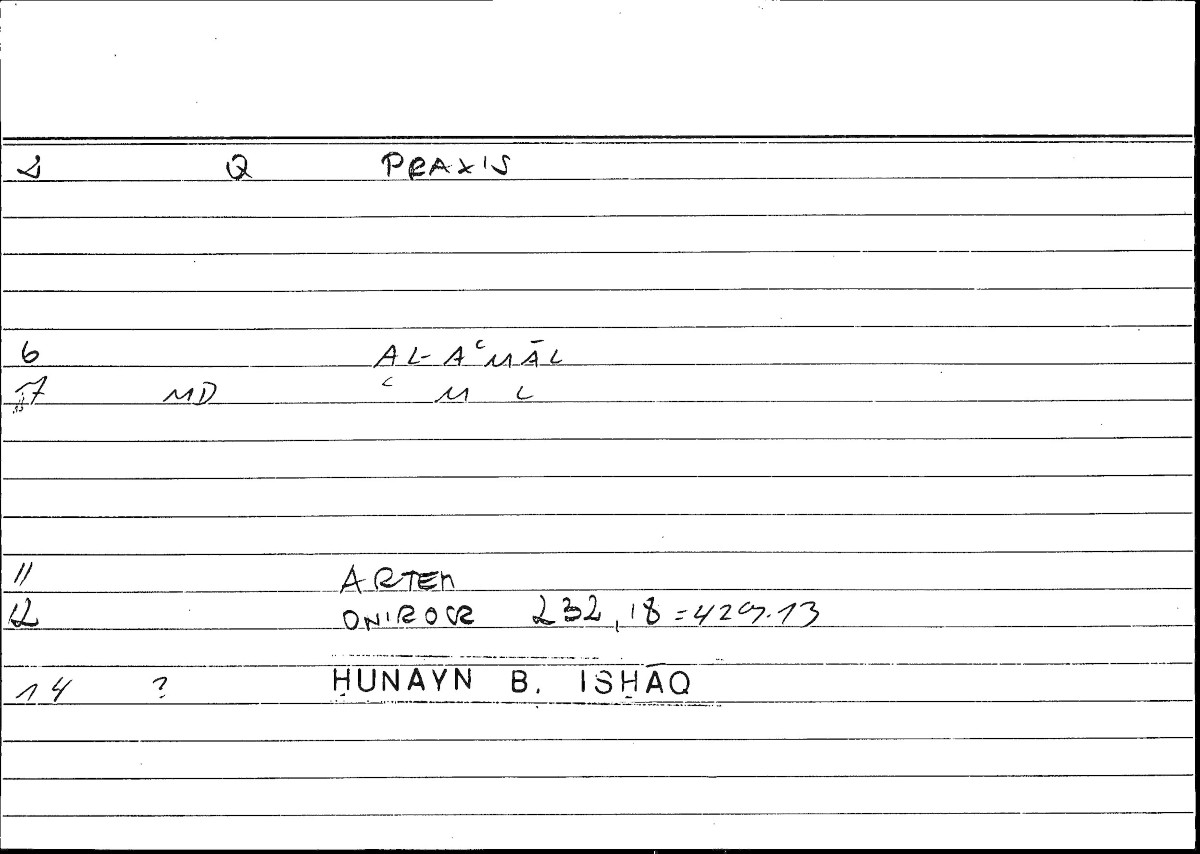 2 Q PRAXIS
6 AL-AʿMĀL
7 MD ʿ M L
11 ARTEM
12 ONIROCR 232,18=429.13
14 ? ḤUNAYN B. ISḤĀQ